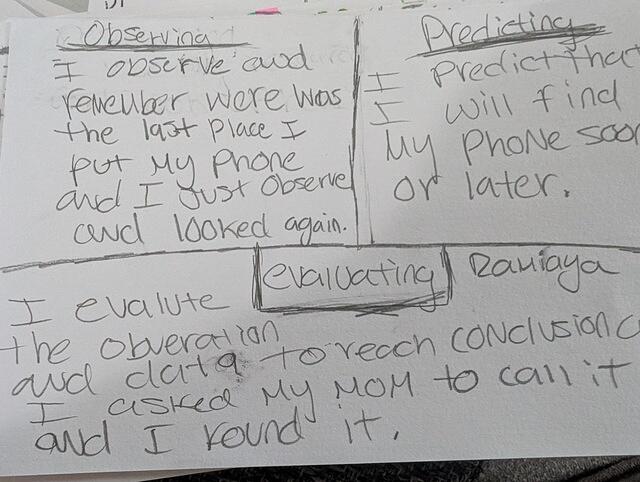 Observing
I observe and
remember were was
the last place I
put my phone
and I just observe
and looked again.
Predicting
I predict that
I will find
my phone soon
or later.
evaluating
Damiaya
I evalute
the obveration
and data to reach conclusion
I asked my mom to call it
and I found it.